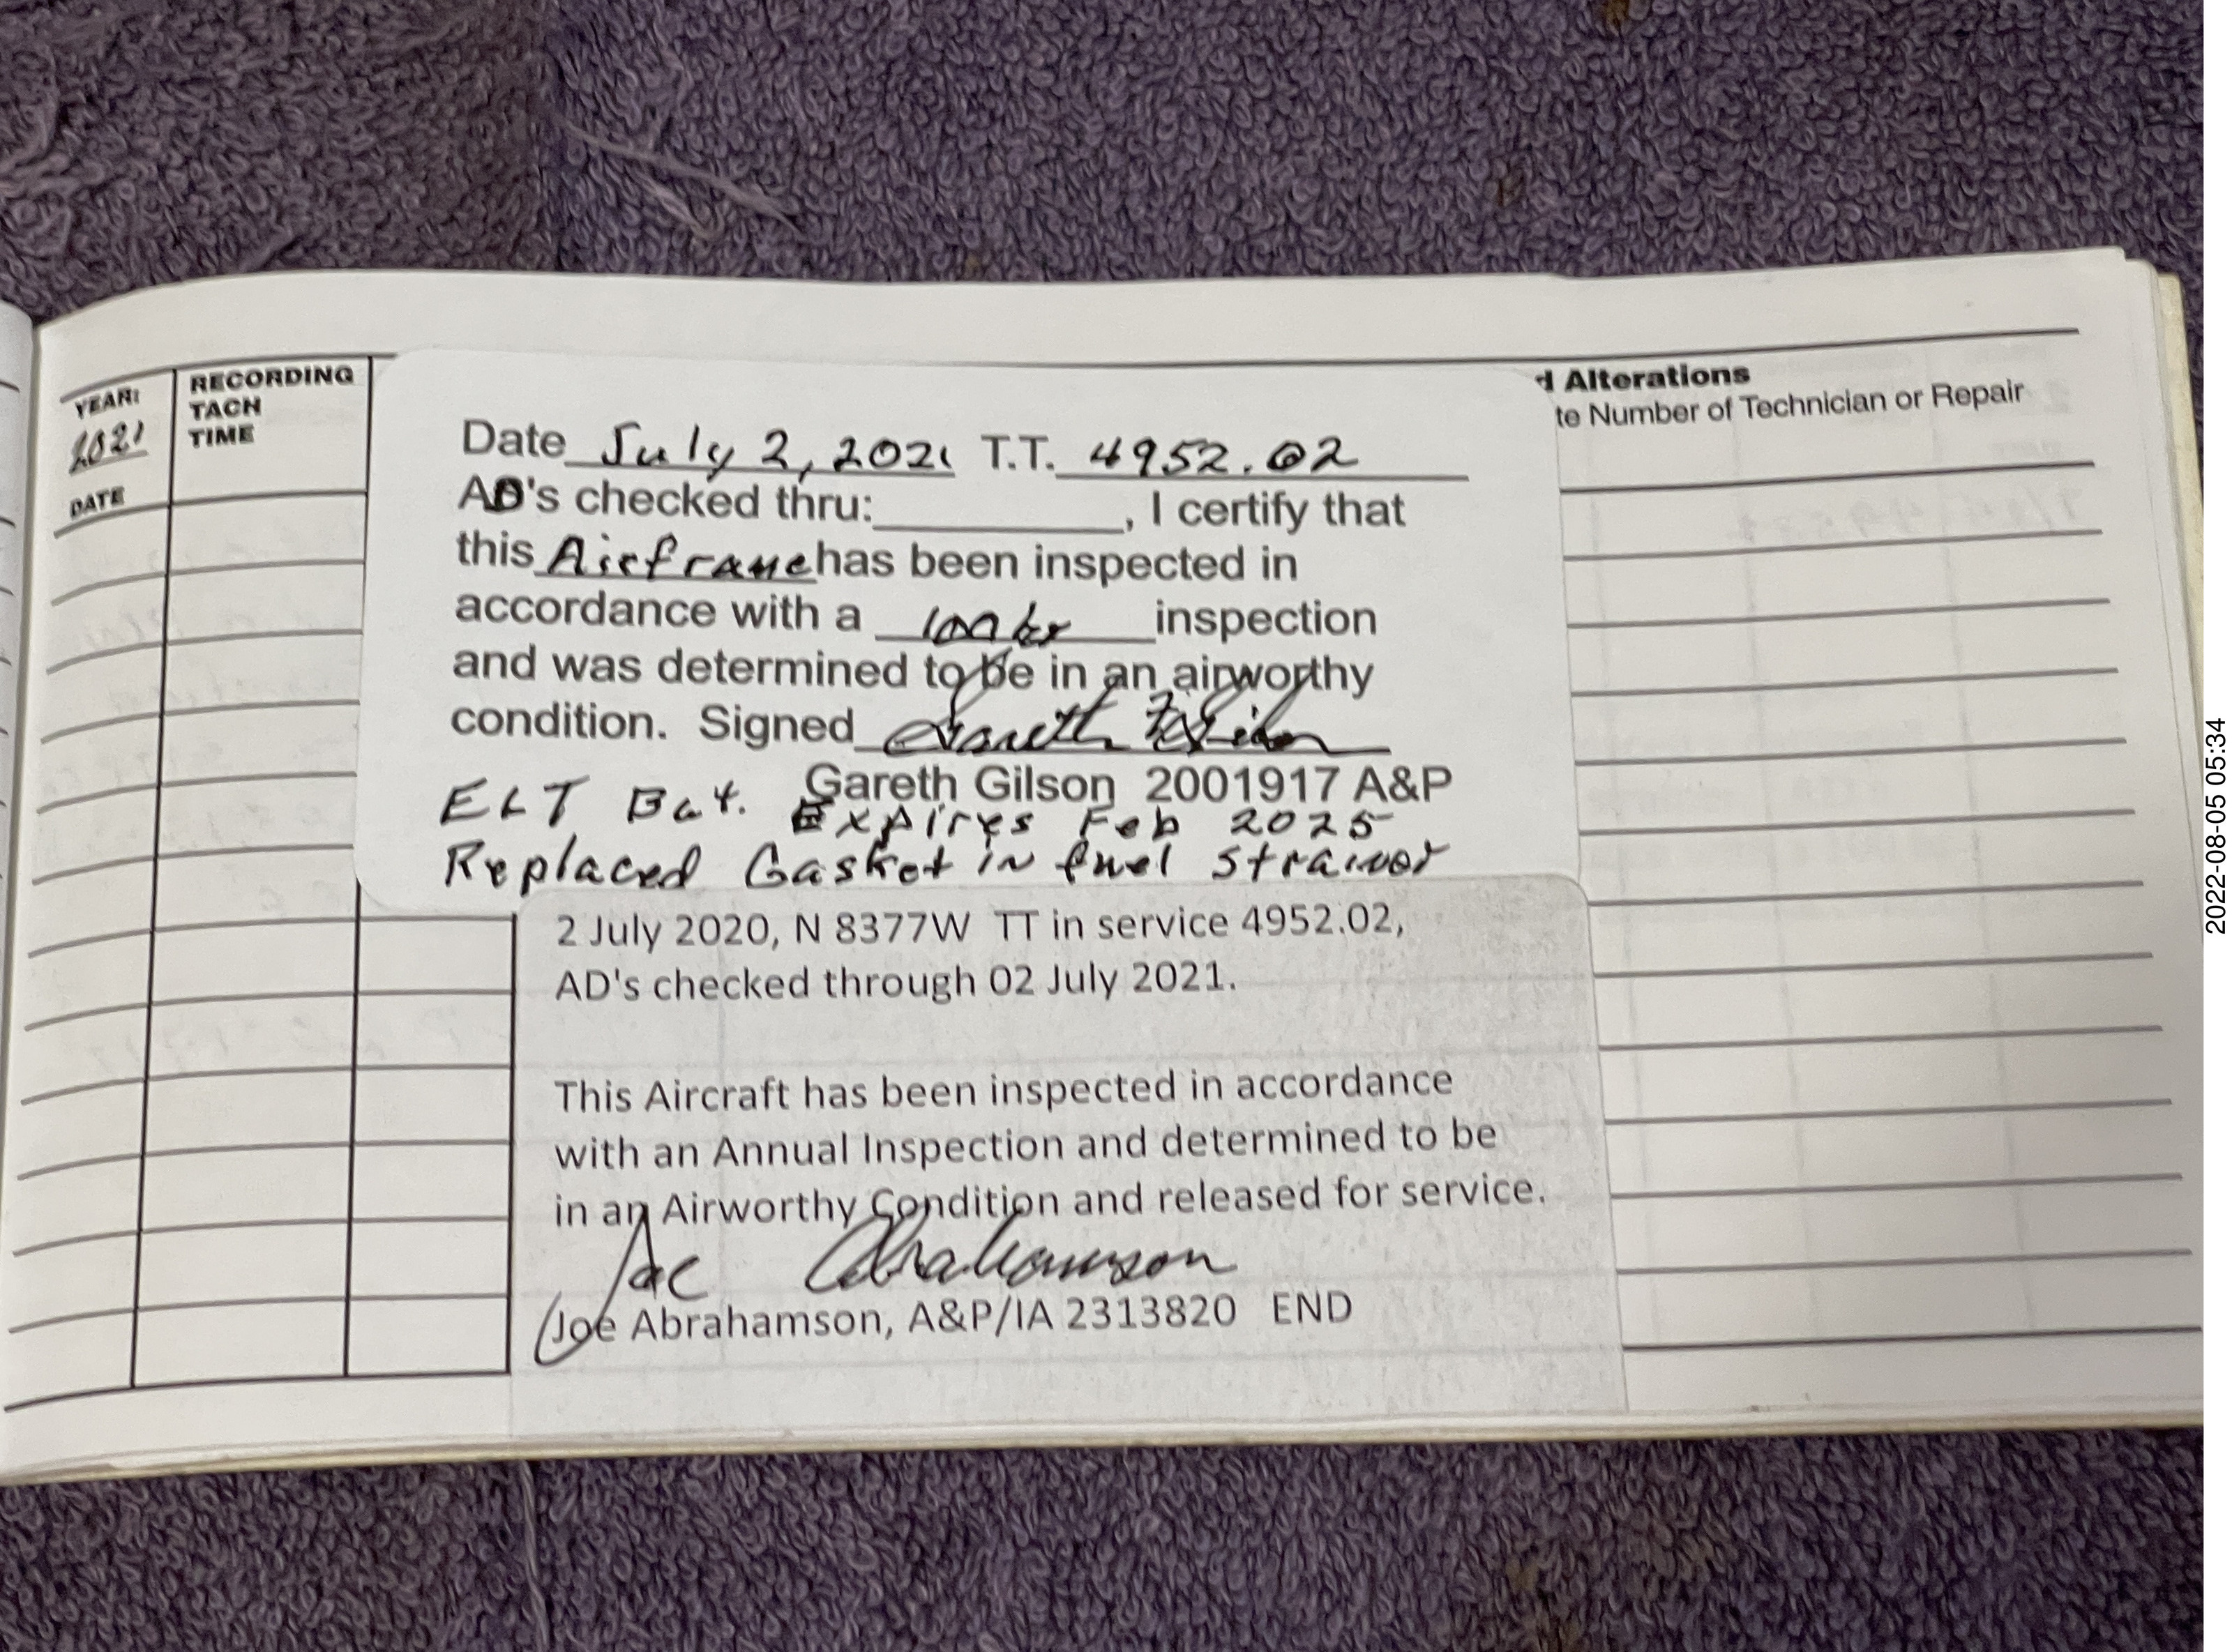 YEAR:
2021
DATE
RECORDING
TACH
TIME
d Alterations
te Number of Technician or Repair
Date July 2, 2021 T.T. 4952.02
AD's checked thru:__________, I certify that
this Airframe has been inspected in
accordance with a 100 hr inspection
and was determined to be in an airworthy
condition. Signed Gareth Gilson
Gareth Gilson 2001917 A&P
ELT Bat. Expires Feb 2025
Replaced Gasket in fuel strainer
2 July 2020, N 8377W TT in service 4952.02,
AD's checked through 02 July 2021.
This Aircraft has been inspected in accordance
with an Annual Inspection and determined to be
in an Airworthy Condition and released for service.
Joe Abrahamson
Joe Abrahamson, A&P/IA 2313820 END
2022-08-05 05:34